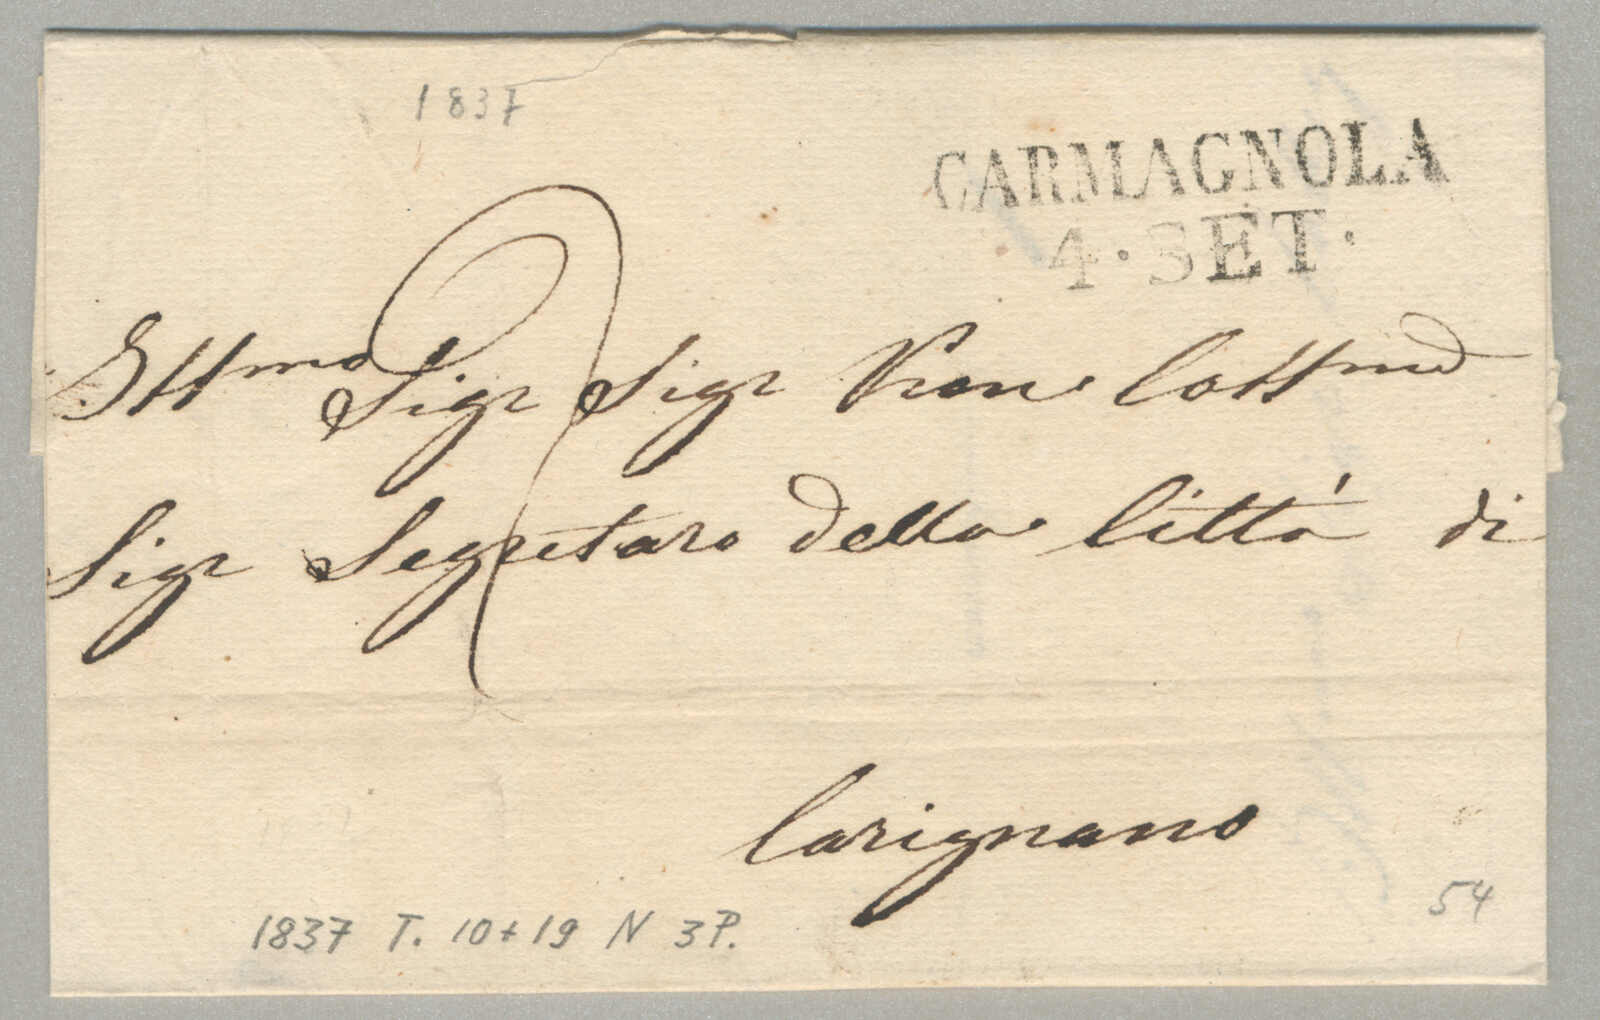 1837
CARMAGNOLA
4 · SET ·
Ill^mo Sigr Sigr Pron Coll^mo
Sigr Segretaro della Città di
Carignano
1837 T. 10+19 N 3P.
54